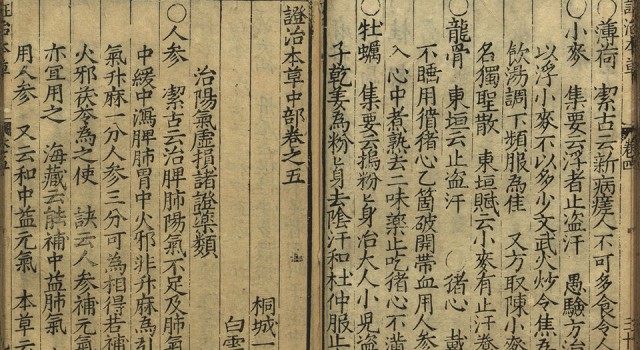 ○薄荷 潔古云新病瘥人不可多食令人
○小麥 集要云浮者止盗汗 愚驗方治
以浮小麥不以多少文武火炒令焦為
飲湯調下頻服為佳 又方取陳小麥
名獨聖散 東垣賦云小麥有止汗養
○龍骨 東垣云止盗汗 猪心 戴
不睡用猪心乙箇破開帶血用人參
入心中煮熟去二味藥止吃猪心不滿
○牡蠣 集要云搗粉㕥身治大人小兒盗
子乾姜為粉㕥身去陰汗和杜仲服止
證治本草中部卷之五
桐城一
白雲
治陽氣虛損諸證藥類
○人參 潔古云治脾肺陽氣不足及肺氣
中緩中瀉脾肺胃中火邪非升麻為引
氣升麻一分人參三分可為相得若補
火邪茯苓為之使 訣云人參補元氣
亦宜用之 海藏云能補中益肺氣
用人參 又云和中益元氣 本草云
證治本草